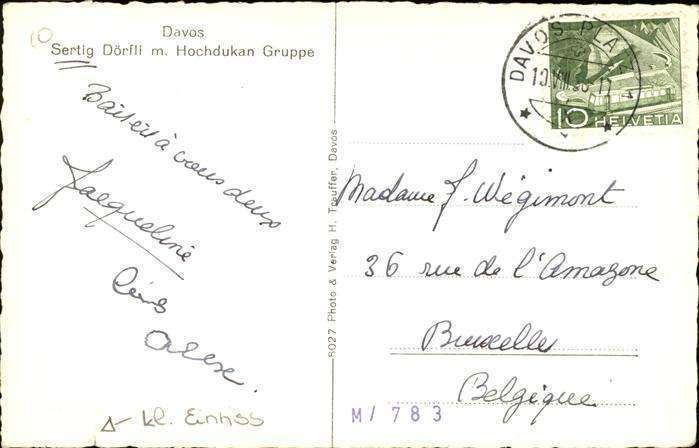 Davos
Sertig Dörfli m. Hochdukan Gruppe
Baisers à vous deux
Jacqueline
Alex.
kl. Einriss
8027 Photo & Verlag H. Trauffer, Davos
DAVOS PLATZ
10
HELVETIA
Madame J. Wégimont
36 rue de l'Amazone
Bruxelles
Belgique
M/783